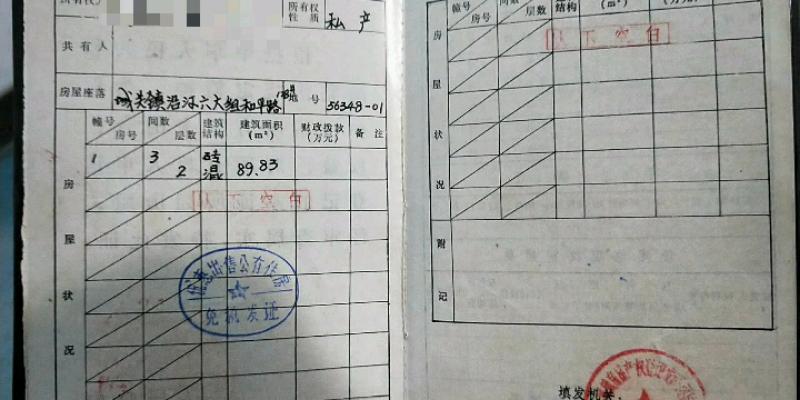 所有权
性 质
私产
共有人
房屋座落
城关镇沿河六大组和平路
地号
56348-01
幢号
房号
间数
层数
建筑
结构
建筑面积
(m²)
财政拨款
(万元)
备注
1
3
2
砖
混
89.83
以下空白
房
屋
状
况
出售公有住房
发证
幢号
房号
间数
层数
结构
(m²)
(万元)
以下空白
房
屋
状
况
附
记
填发机关